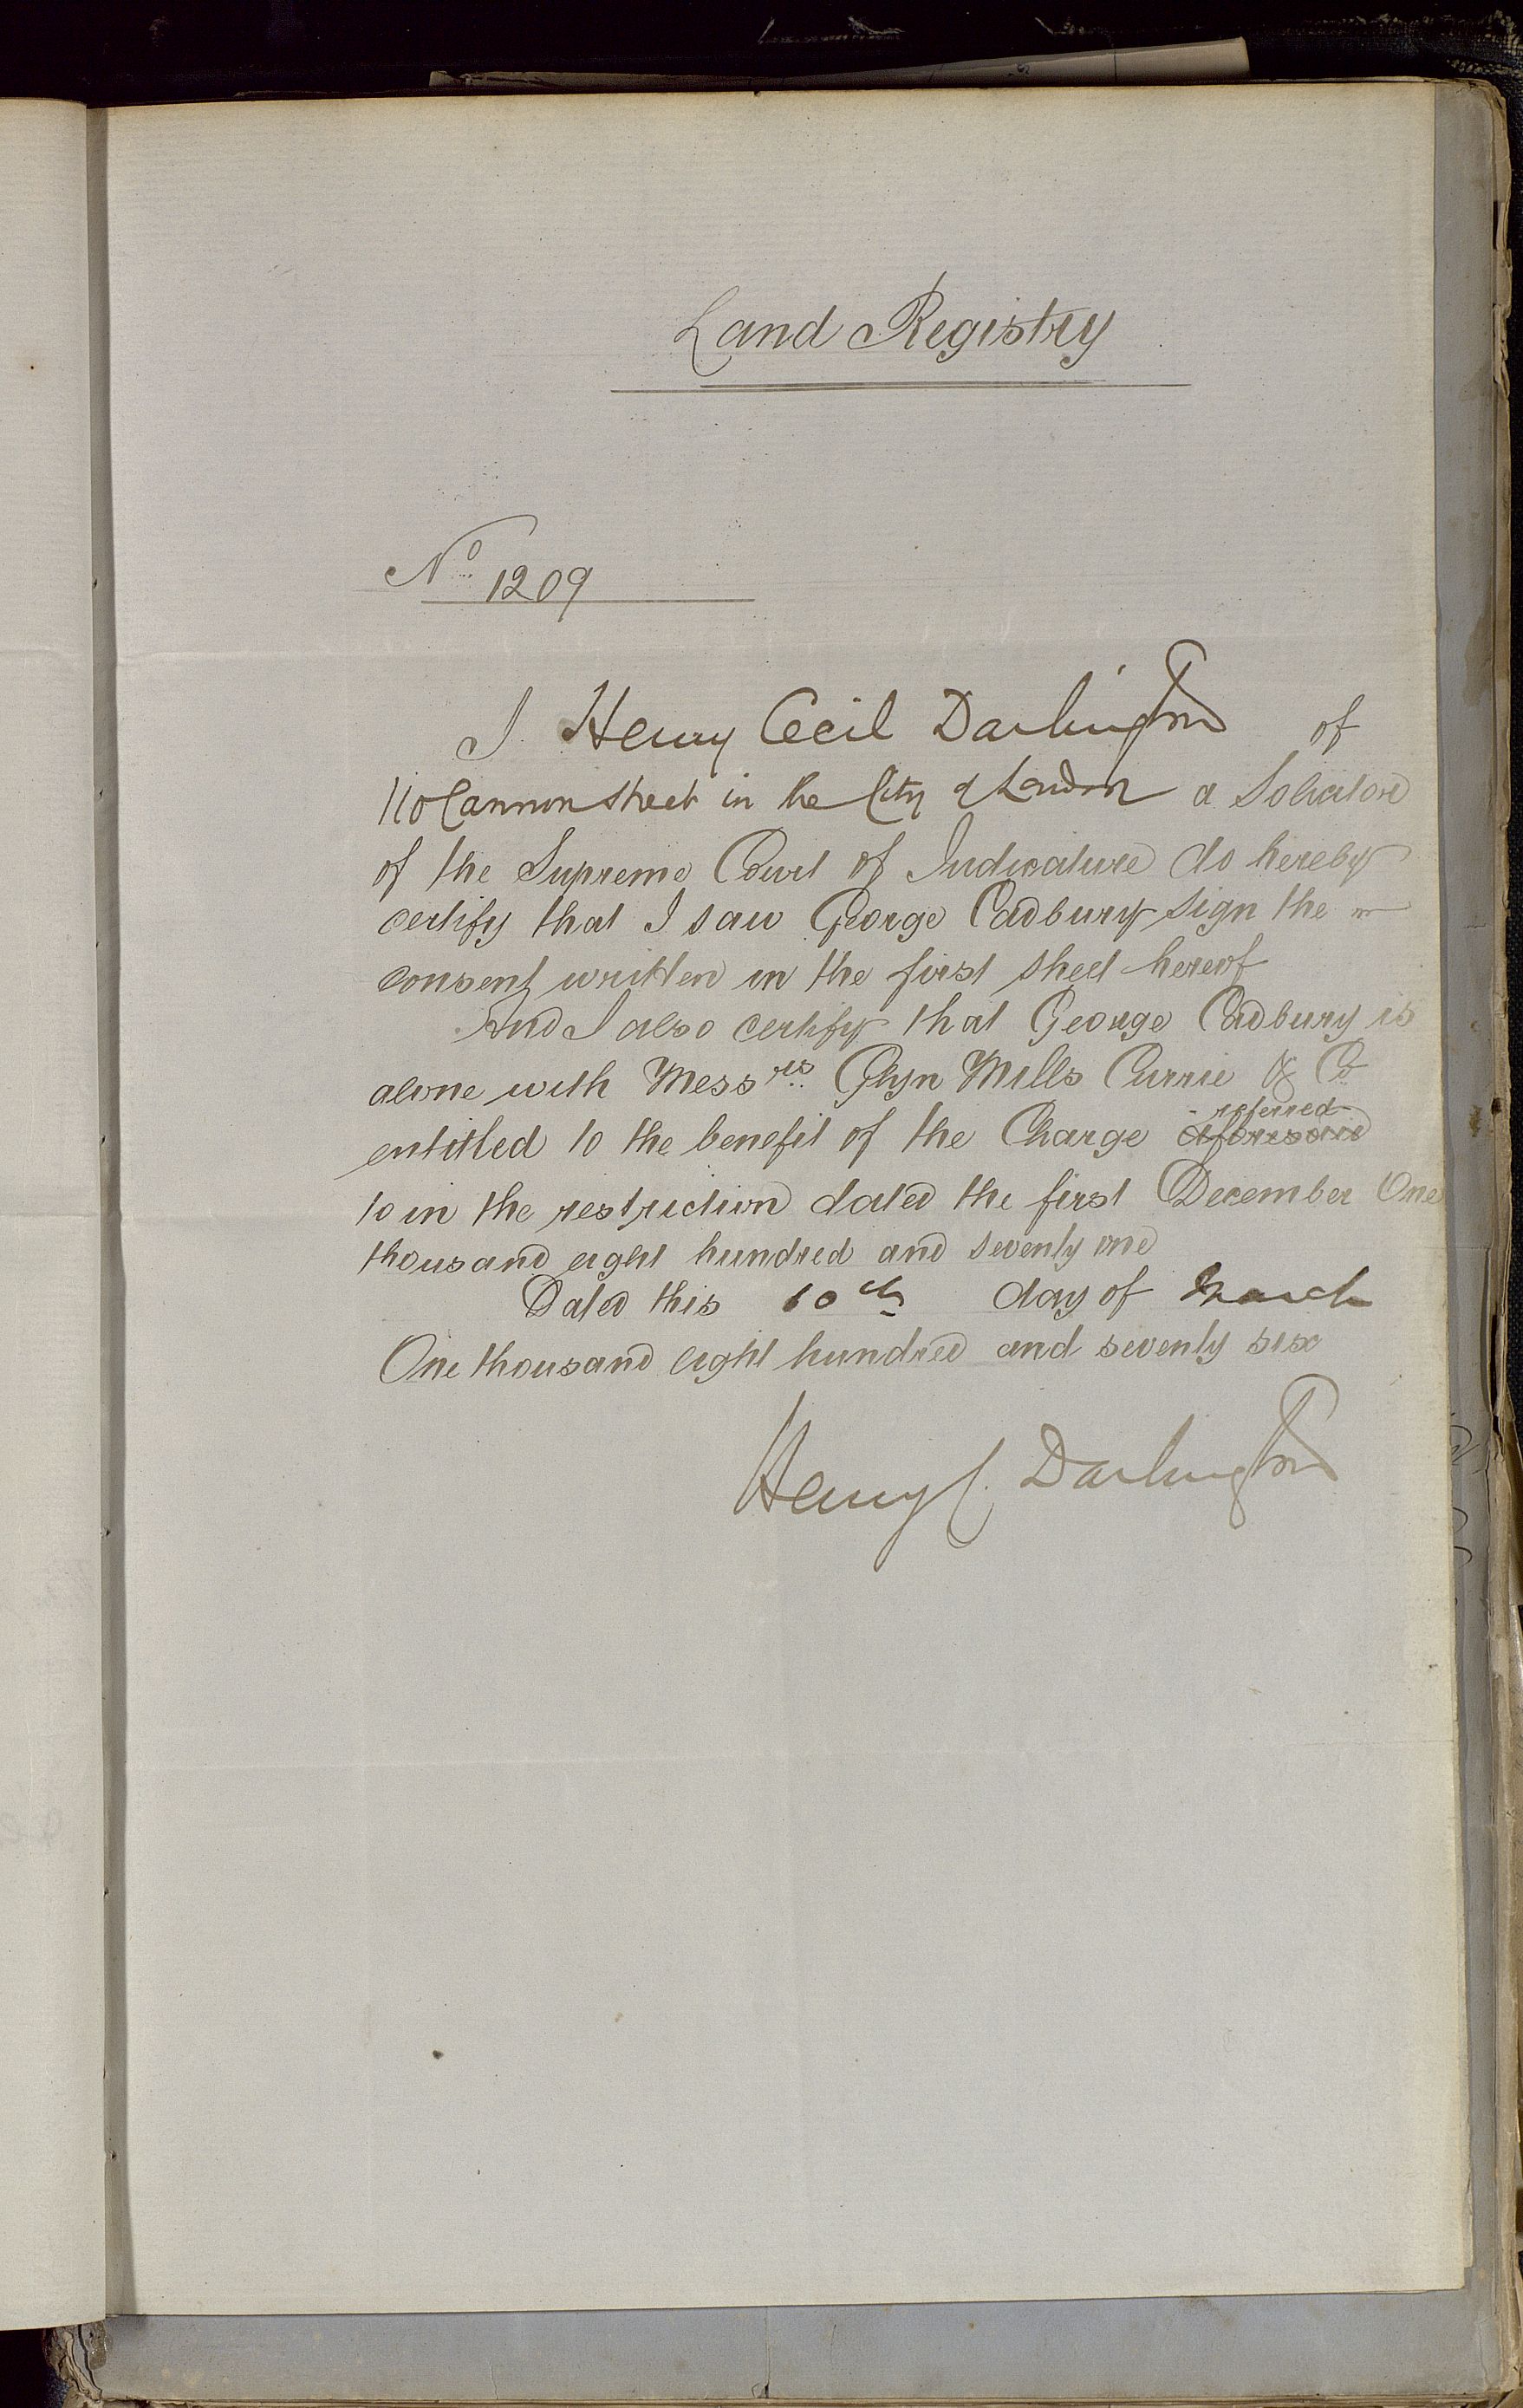 Land Registry
No 1209
I Henry Cecil Darlington of
110 Cannon Street in the City of London a Solicitor
of the Supreme Court of Judicature do hereby
certify that I saw George Cadbury sign the
consent written in the first sheet hereof
And I also certify that George Cadbury is
alone with Messrs Glyn Mills Currie & Co
referred
entitled to the benefit of the Charge aforesaid
to in the restriction dated the first December One
thousand eight hundred and seventy one
Dated this 10th day of March
One thousand eight hundred and seventy six
Henry C. Darlington